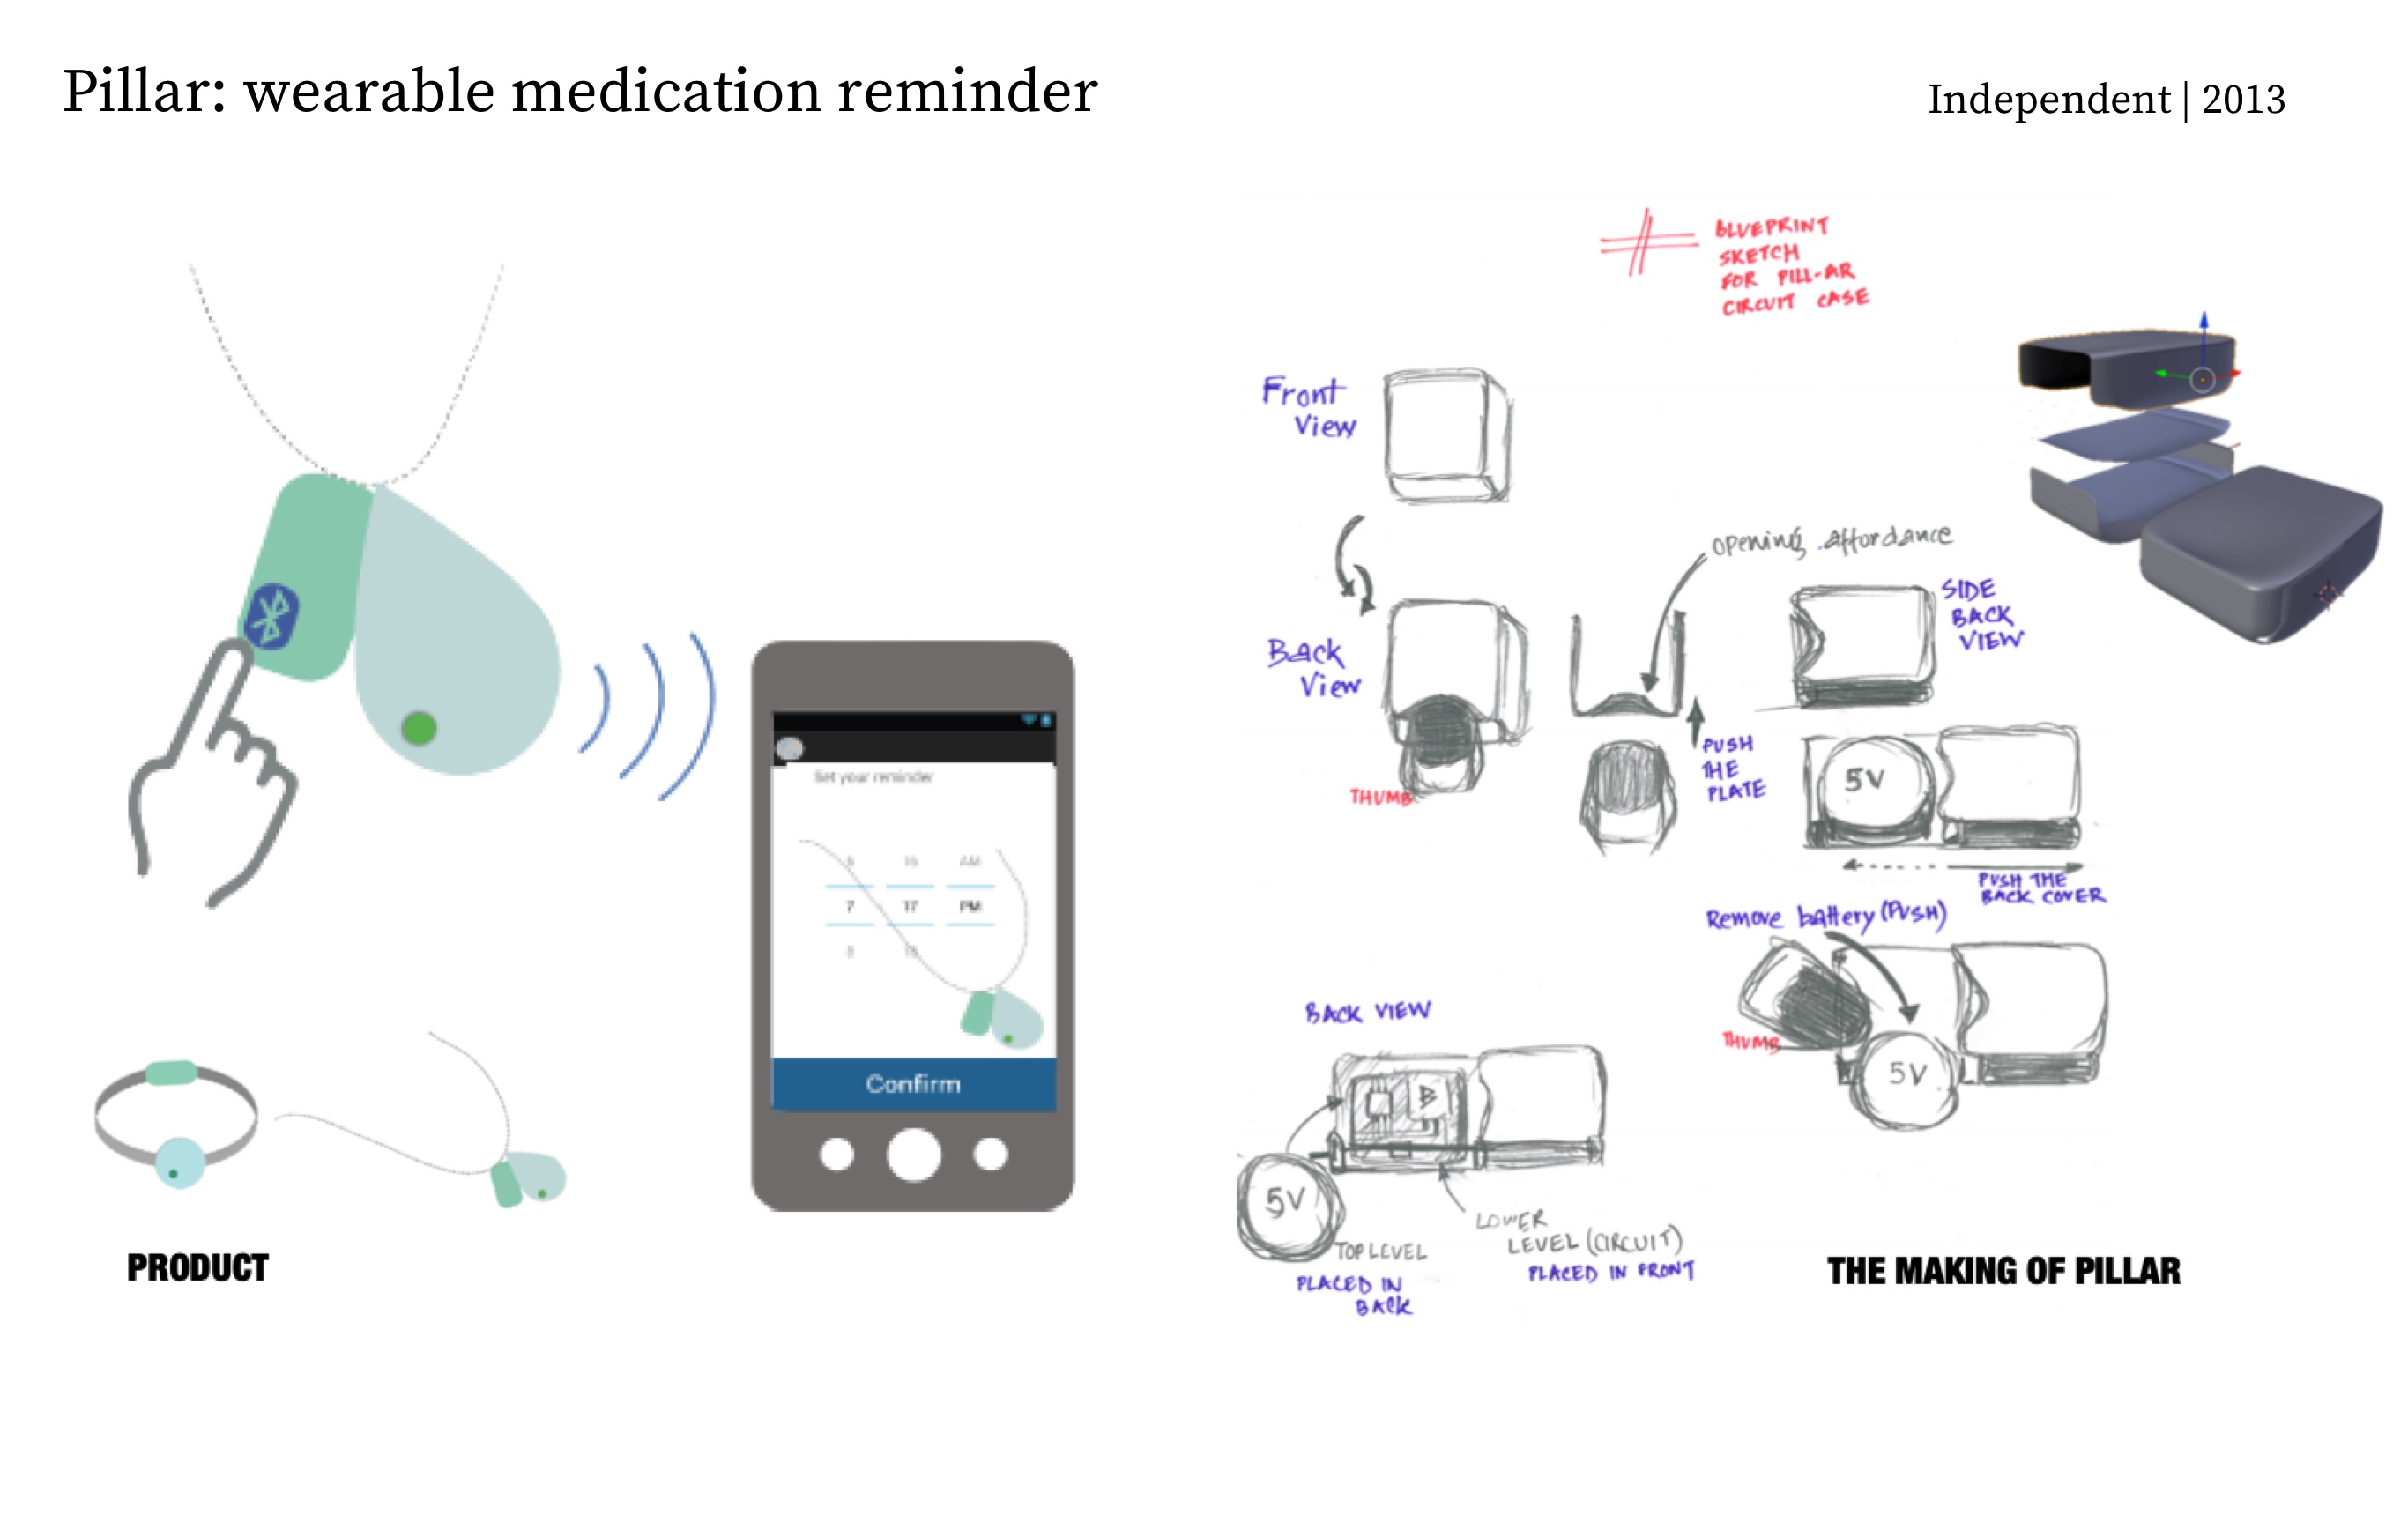 Pillar: wearable medication reminder
Independent | 2013
Set your reminder
6 16 AM
7 17 PM
8 18
Confirm
PRODUCT
BLUEPRINT
SKETCH
FOR PILL-AR
CIRCUIT CASE
Front
View
opening affordance
Back
View
THUMB
PUSH
THE
PLATE
SIDE
BACK
VIEW
5V
PUSH THE
BACK COVER
Remove battery (PUSH)
THUMB
5V
BACK VIEW
B
5V
TOP LEVEL
PLACED IN
BACK
LOWER
LEVEL (CIRCUIT)
PLACED IN FRONT
THE MAKING OF PILLAR